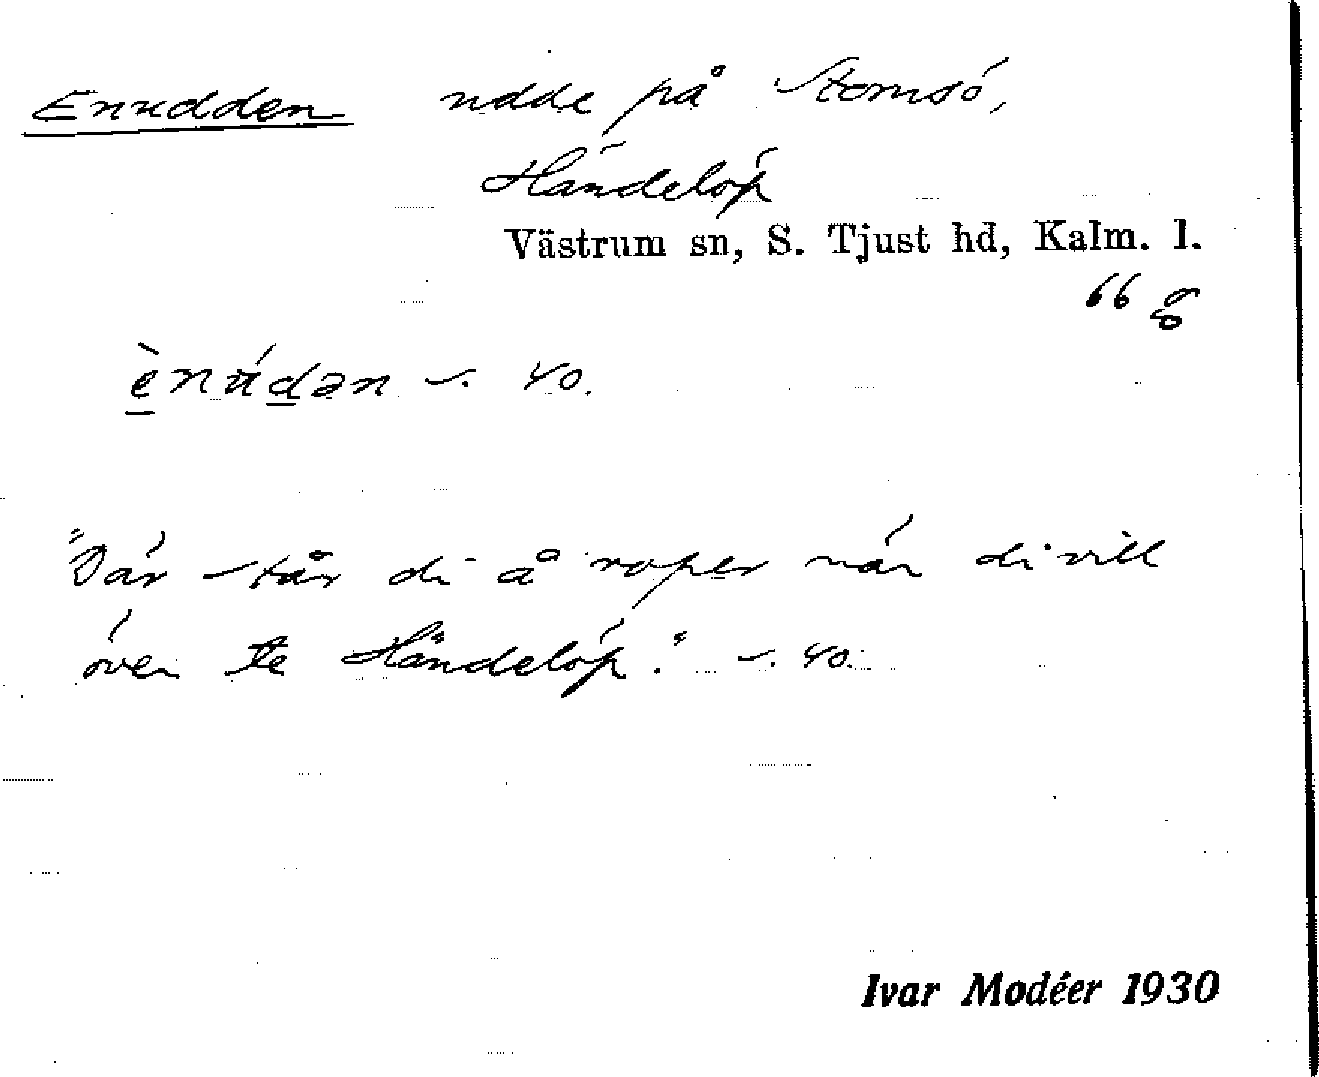 Enudden udde på Stomsö,
Händelöp
Västrum sn, S. Tjust hd, Kalm. l.
66
ènúdən 40.
"Där står di å roper när di vill
över te Händelöp." 40.
Ivar Modéer 1930